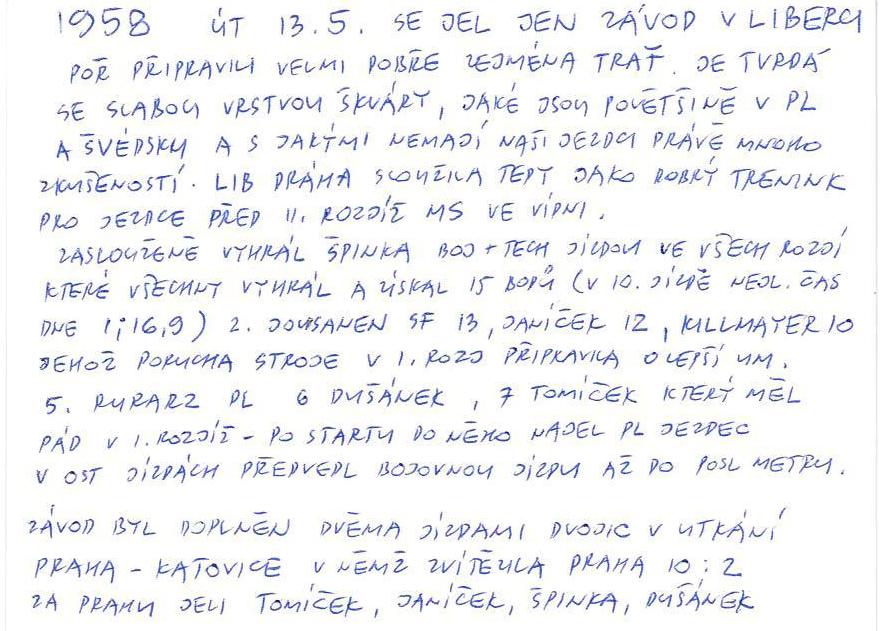 1958 ÚT 13.5. SE JEL JEN ZÁVOD V LIBERCI
POŘ PŘIPRAVILI VELMI DOBŘE ZEJMÉNA TRAŤ. JE TVRDÁ
SE SLABOU VRSTVOU ŠKVÁRY, JAKÉ JSOU POVĚTŠINĚ V PL
A ŠVÉDSKU A S JAKÝMI NEMAJÍ NAŠI JEZDCI PRÁVĚ MNOHO
ZKUŠENOSTÍ. LIB DRÁHA SLOUŽILA TEDY JAKO DOBRÝ TRENINK
PRO JEZDCE PŘED II. ROZJÍŽ MS VE VÍDNI.
ZASLOUŽENĚ VYHRÁL ŠPINKA BOJ + TECH JÍZDOU VE VŠECH ROZJÍ
KTERÉ VŠECHNY VYHRÁL A ZÍSKAL 15 BODŮ (V 10. JÍZDĚ NEJL. ČAS
DNE 1;16,9) 2. JOUSANEN SF 13, JANÍČEK 12, KILLMAYER 10
JEHOŽ PORUCHA STROJE V 1. ROZJ PŘIPRAVILA O LEPŠÍ UM.
5. RURARZ PL 6 DUŠÁNEK, 7 TOMÍČEK KTERÝ MĚL
PÁD V 1. ROZJÍŽ - PO STARTU DO NĚHO NAJEL PL JEZDEC
V OST JÍZDÁCH PŘEDVEDL BOJOVNOU JÍZDU AŽ DO POSL METRU.
ZÁVOD BYL DOPLNĚN DVĚMA JÍZDAMI DVOJIC V UTKÁNÍ
PRAHA - KATOVICE V NĚMŽ ZVÍTĚZILA PRAHA 10 : 2
ZA PRAHU JELI TOMÍČEK, JANÍČEK, ŠPINKA, DUŠÁNEK